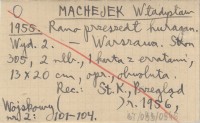 O MACHEJEK Władysław
1955. Rano przeszedł huragan.
Wyd. 2. — Warszawa. Mon
305, 2 nlb., 1 karta z erratami,
13 x 20 cm, opr., obwoluta.
Rec.: St. K., Przegląd
Wojskowy r. 1956,
nr 2: 101-104.